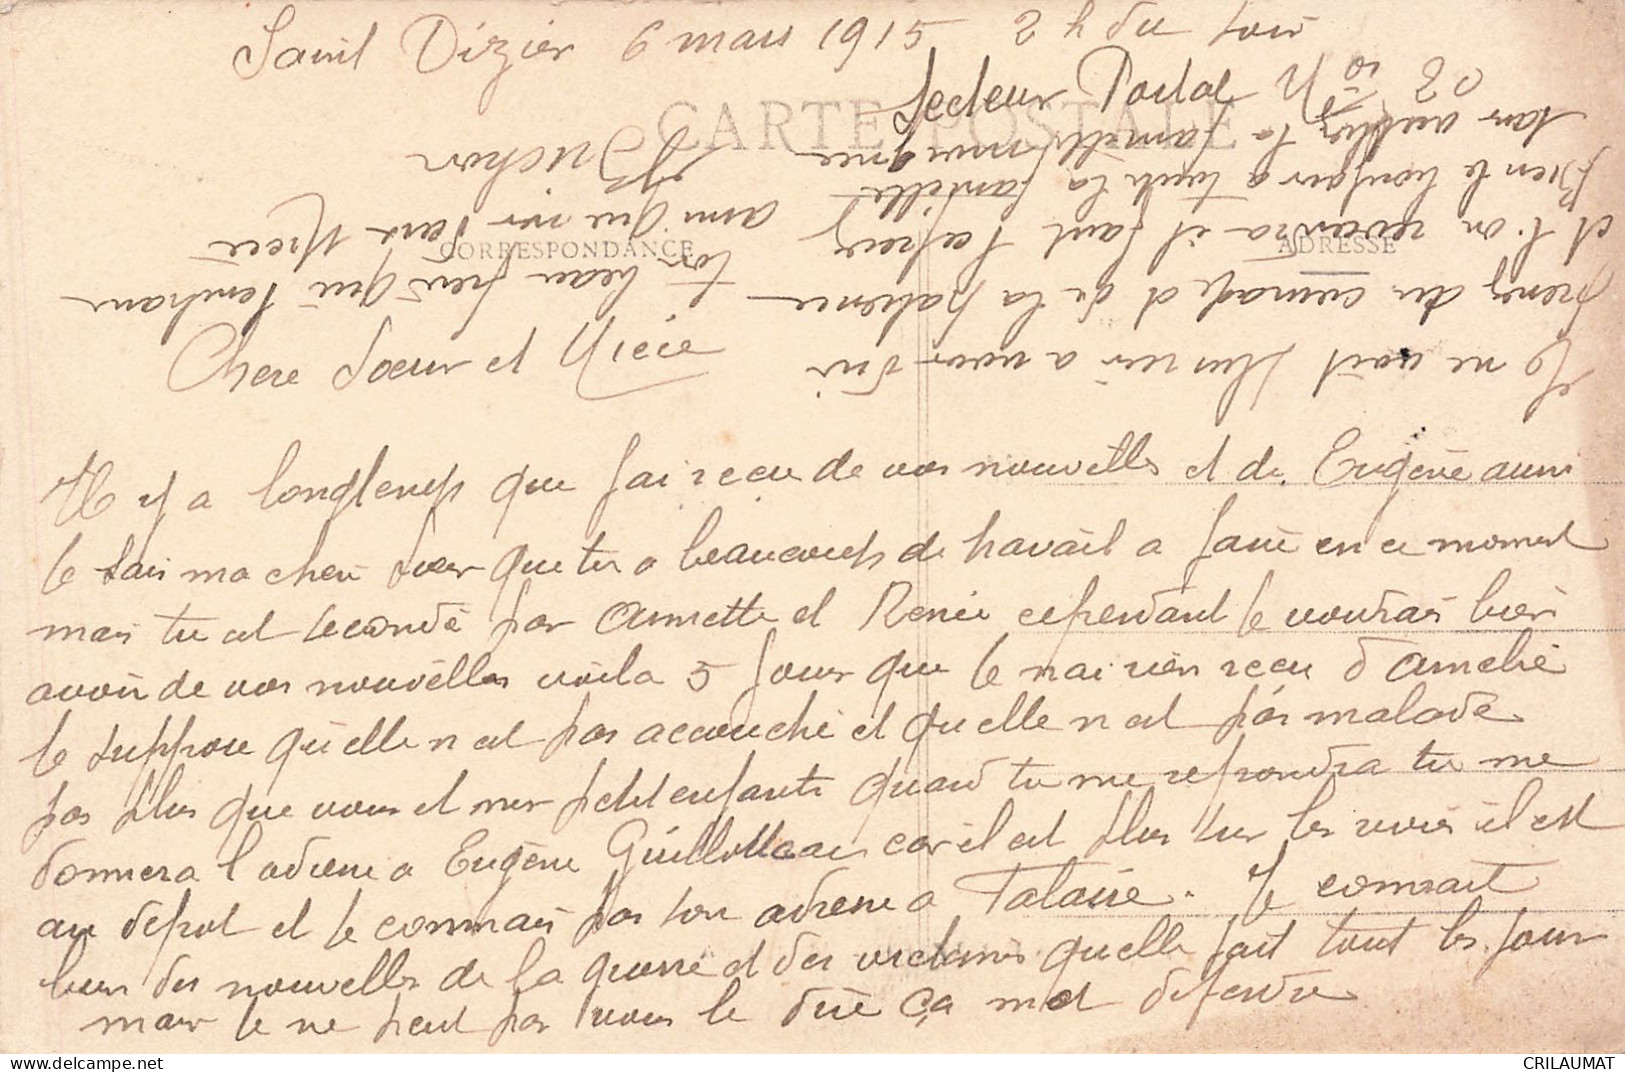 Saint Dizier 6 mars 1915 2 h du soir
Secteur Postal N° 10
CARTE POSTALE
CORRESPONDANCE
ADRESSE
Chere Soeur et Niéce
Il y a longtemps que jai recu de vos nouvelles et de Eugène aussi
Je sais ma chere soeur que tu a beaucoups de travail a faire en ce moment
mais tu est secondé par Annette et Renée cependant je voudrais bien
avoir de vos nouvelles voila 5 jours que je nai rien recu d'Amelie
Je suppose quelle n est pas accouché et quelle n est pas malade
pas plus que vous et mes petit enfants quand tu me repondra tu me
donnera l adresse a Eugène car il est plus sur les il est
au depot et je connais pas son adresse a Talaire. Je connait
bien des nouvelles de la guerre et des victimes quelle fait tout les jours
mais je ne peut pas vous le dire ça m est defendre
Je ne voit plus rien a vous dire
prenez du courage et de la patience
et l'on revera il faut l'esperez
Bien le bonjour a toute la famille
sans oublier la famille
ton beau frere qui t'embrasse
ainsi que Niece
Buchon